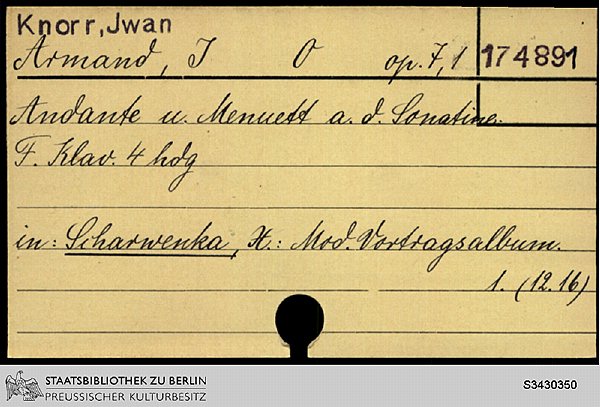 Knorr, Jwan
Armand, J O op. 7,1 174891
Andante u. Menuett a. d. Sonatine.
F. Klav. 4 hdg
in: Scharwenka, X.: Mod. Vortragsalbum.
1. (12.16)
STAATSBIBLIOTHEK ZU BERLIN
PREUSSISCHER KULTURBESITZ
S3430350